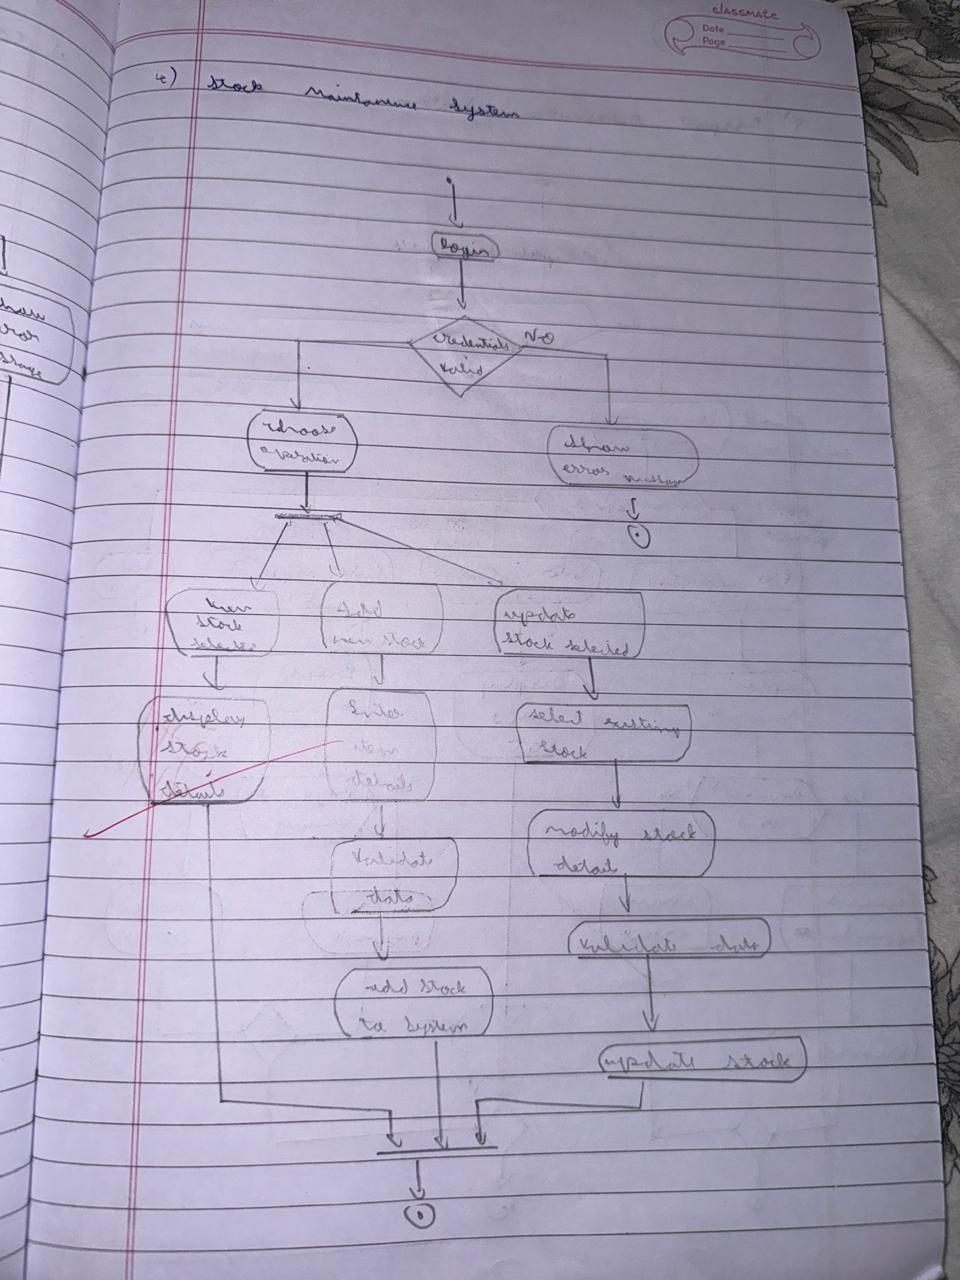 classmate
Date
Page
4) Stock Maintanence System
Login
credentials
valid
NO
choose
operation
show
error message
view
stock
selected
Add
new stock
update
stock selected
display
stock
details
Enter
item
details
select existing
stock
Validate
data
modify stock
detail
validate data
add stock
to system
update stock
show
error